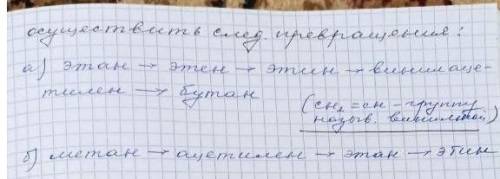 осуществить след. превращения:
а) этан → этен → этин → винилаце-
тилен → бутан
(CH₂ = CH – группу
назыв. винильной)
б) метан → ацетилен → этан → этин